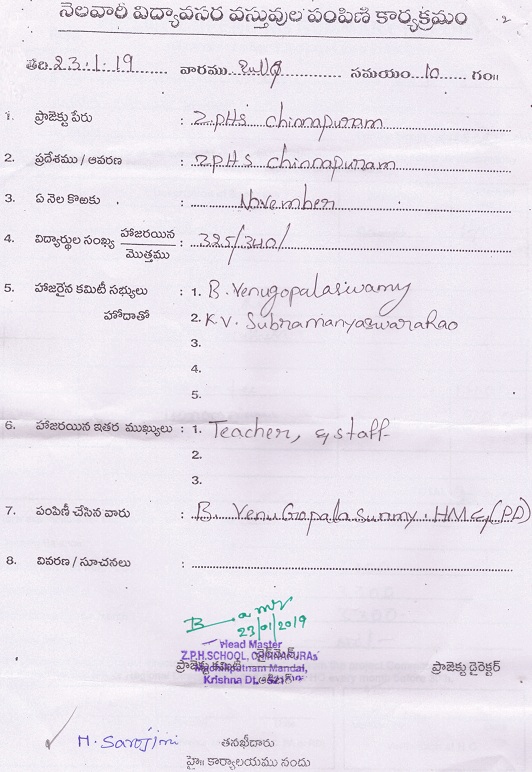 నెలవారీ విద్యావసర వస్తువుల పంపిణి కార్యక్రమం
తేది 23.1.19 వారము సమయం 10 గం॥
1. ప్రాజెక్టు పేరు : Z.PHS chinnapuram
2. ప్రదేశము / ఆవరణ : ZPHS chinnapuram
3. ఏ నెల కొఱకు : November
4. విద్యార్థుల సంఖ్య హాజరయిన / మొత్తము : 325/340/
5. హాజరైన కమిటీ సభ్యులు : 1. B. Venugopalaswamy
హోదాతో 2. K.V. Subramanyaswarakao
3.
4.
5.
6. హాజరయిన ఇతర ముఖ్యులు : 1. Teacher, & staff
2.
3.
7. పంపిణీ చేసిన వారు : B. Venu Gopala Swamy. HM & (PD)
8. వివరణ / సూచనలు :
23/01/2019
Head Master
Z.P.H.SCHOOL,
ప్రాజెక్టు కమిటీ చైర్మెన్ ప్రాజెక్టు డైరెక్టర్
Machilipatnam Mandal,
Krishna Dt.
M. Sarojini తనఖీదారు
హై॥ కార్యాలయము నందు